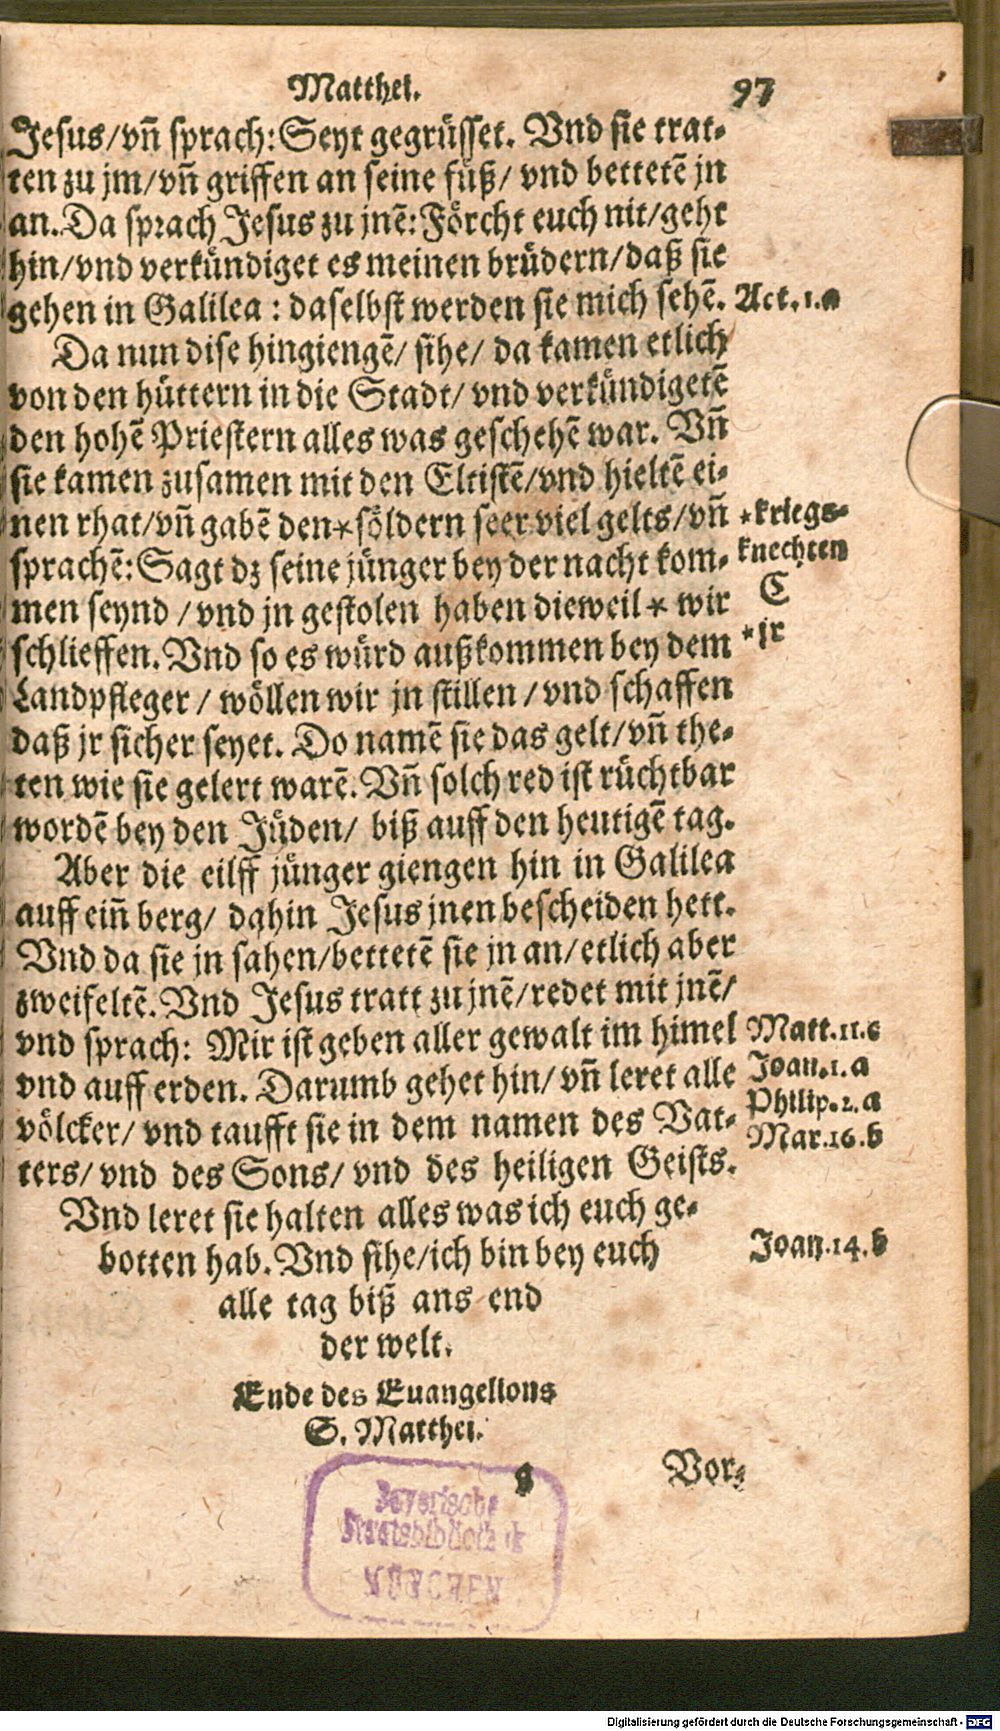 Matthei. 97
Jesus/vñ sprach: Seyt gegrüsset. Vnd sie trat-
ten zu jm/vñ griffen an seine füß/ vnd bettetē jn
an. Da sprach Jesus zu jnē: Förcht euch nit/geht
hin/vnd verkündiget es meinen brüdern/daß sie
gehen in Galilea : daselbst werden sie mich sehē. Act. 1. a
Da nun dise hingiengē/ sihe/ da kamen etlich
von den hüttern in die Stadt/ vnd verkündigetē
den hohē Priestern alles was geschehē war. Vñ
sie kamen zusamen mit den Eltistē/vnd hieltē ei-
nen rhat/vñ gabē den * söldern seer viel gelts/vñ * kriegs-
sprachē: Sagt dz seine jünger bey der nacht kom- knechten
C
men seynd /vnd jn gestolen haben dieweil * wir
schlieffen. Vnd so es würd außkommen bey dem * jr
Landpfleger / wöllen wir jn stillen /vnd schaffen
daß jr sicher seyet. Do namē sie das gelt/vñ the-
ten wie sie gelert warē. Vñ solch red ist rüchtbar
wordē bey den Jüden/ biß auff den heutigē tag.
Aber die eilff jünger giengen hin in Galilea
auff eiñ berg/ dahin Jesus jnen bescheiden hett.
Vnd da sie jn sahen/bettetē sie jn an/etlich aber
zweifeltē. Vnd Jesus tratt zu jnē/redet mit jnē/
vnd sprach: Mir ist geben aller gewalt im himel Matt. 11. c
vnd auff erden. Darumb gehet hin/ vñ leret alle Joan. 1. a
Philip. 2. a
völcker/ vnd taufft sie in dem namen des Vat- Mar. 16. b
ters/ vnd des Sons/ vnd des heiligen Geists.
Vnd leret sie halten alles was ich euch ge-
botten hab. Vnd sihe/ich bin bey euch Joan. 14. b
alle tag biß ans end
der welt.
Ende des Euangelions
S. Matthei.
Vor-
Bayerische
Staatsbibliothek
MÜNCHEN
Digitalisierung gefördert durch die Deutsche Forschungsgemeinschaft - DFG